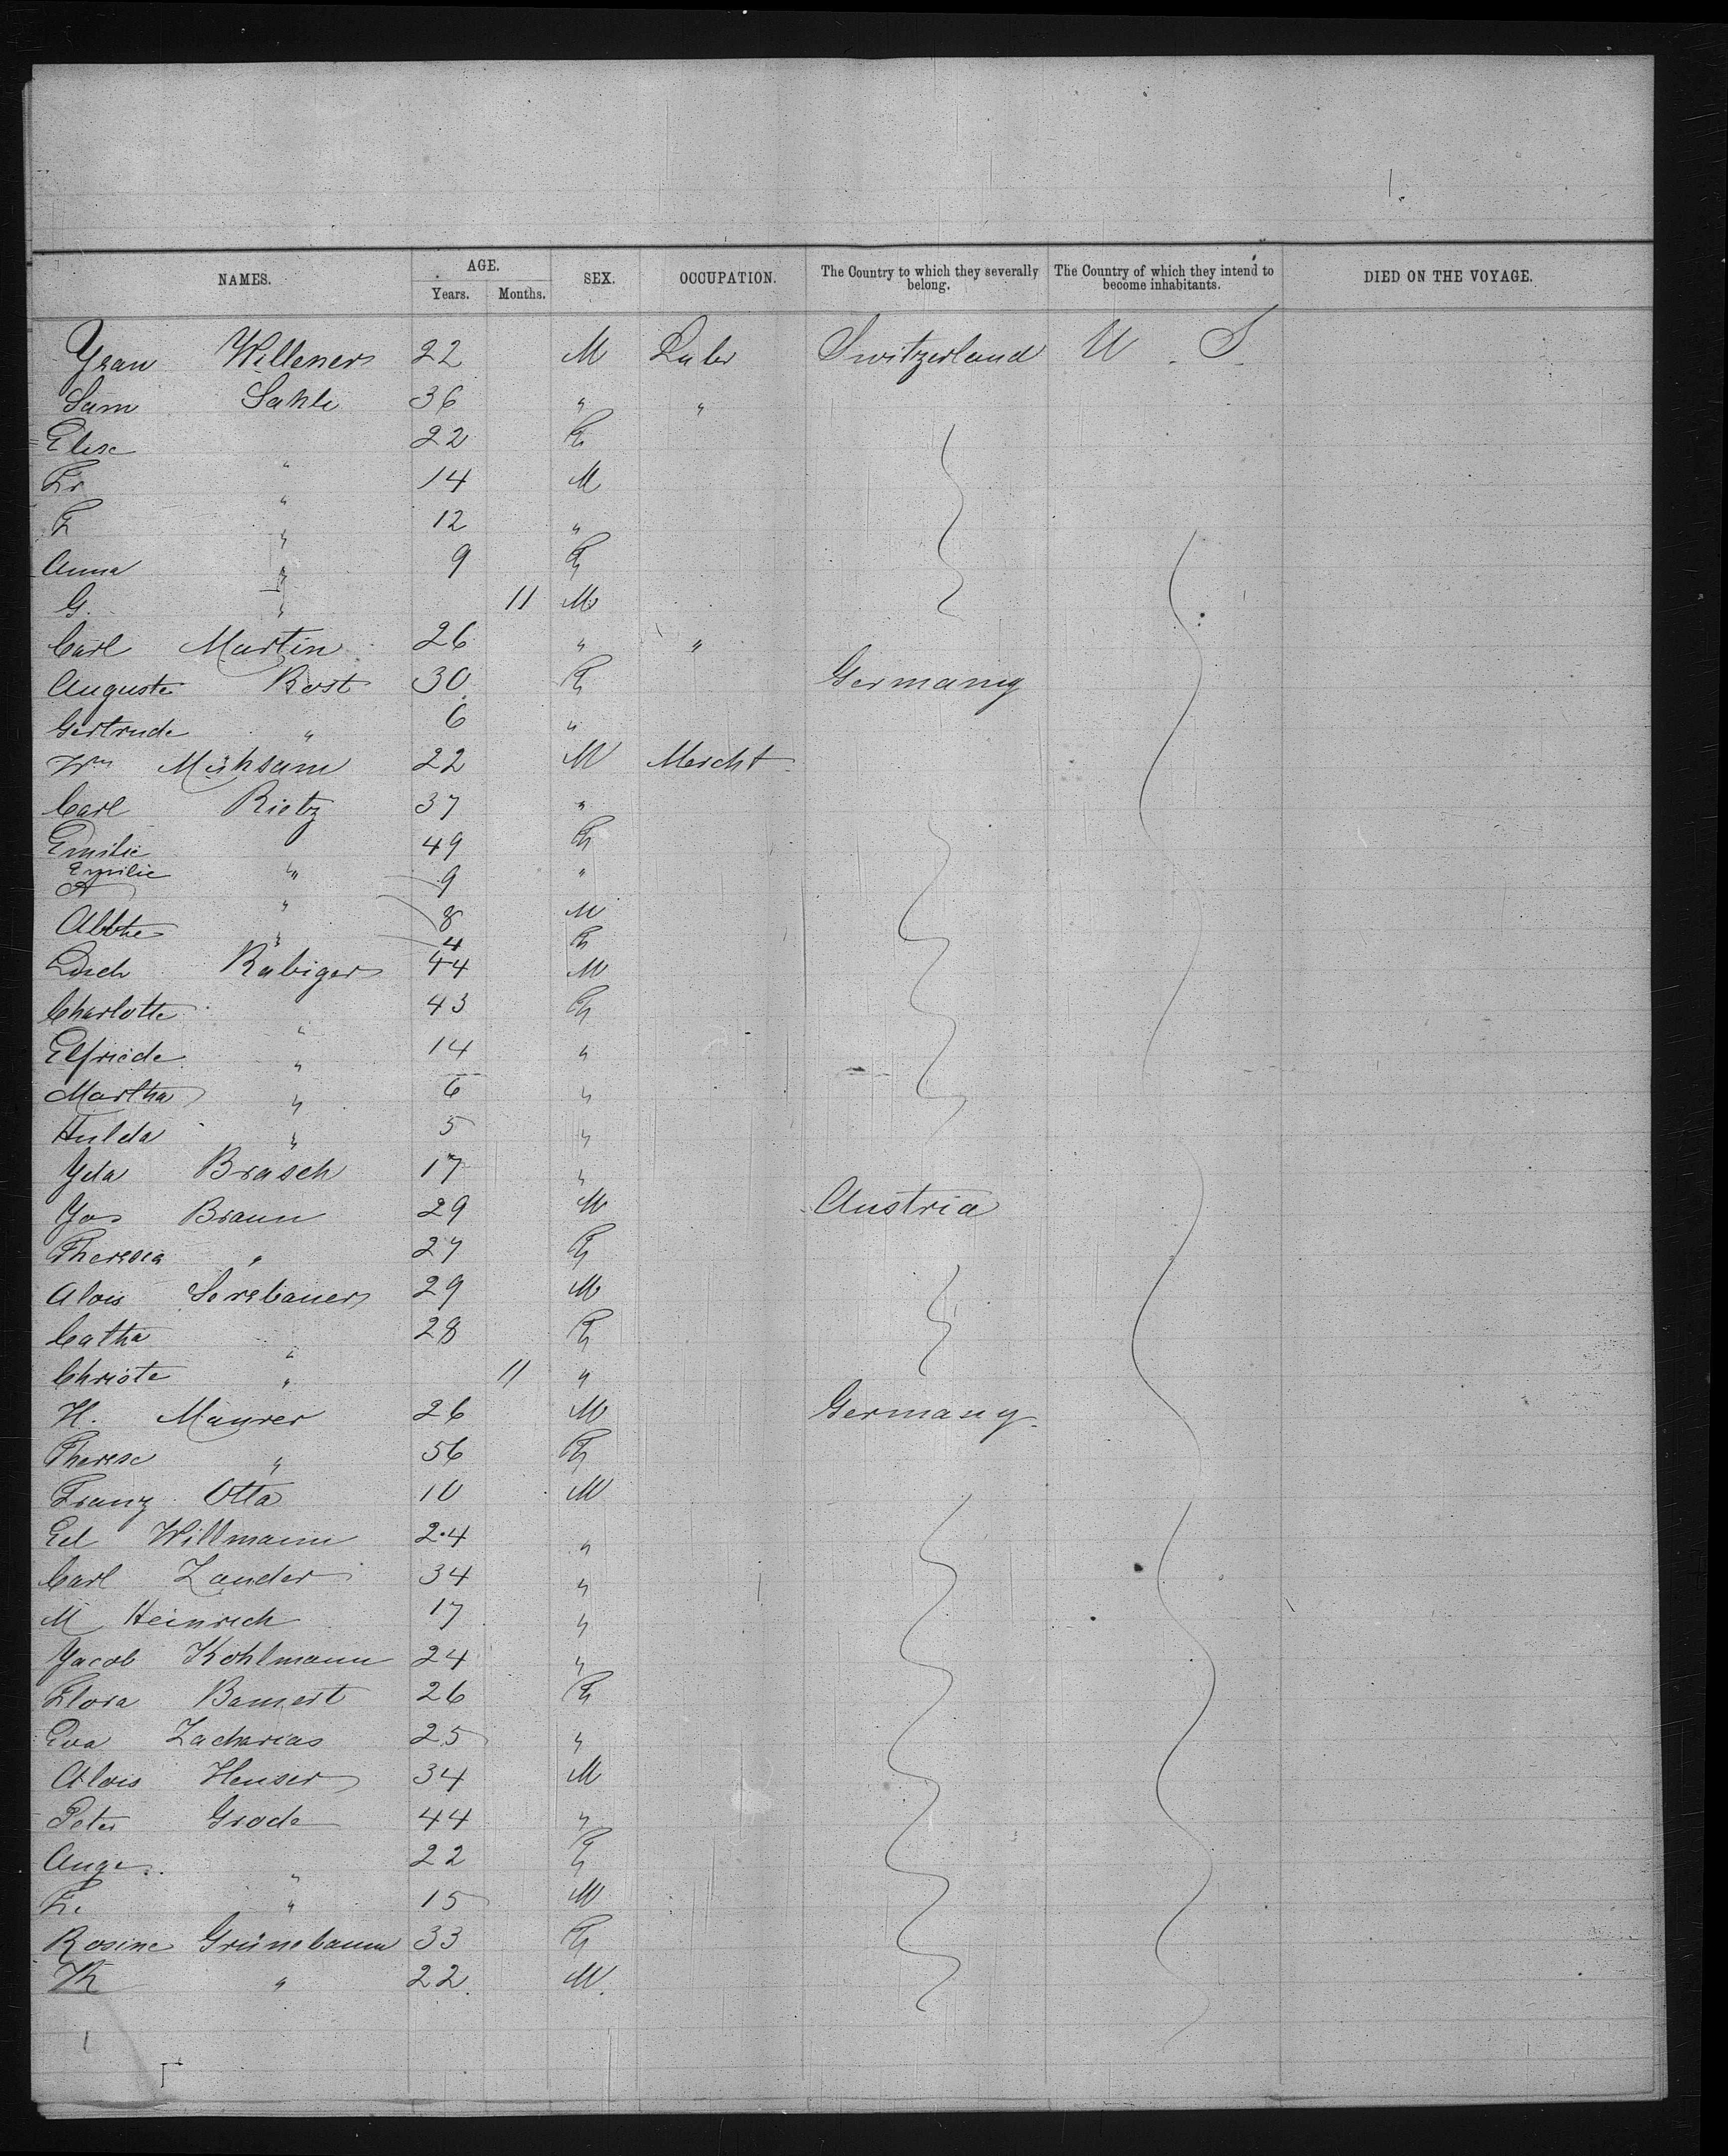 NAMES. AGE. SEX. OCCUPATION. The Country to which they severally belong. The Country of which they intend to become inhabitants. DIED ON THE VOYAGE.
Years. Months.
Willener 22 M Labr Switzerland U. S.
Sam Sahli 36 " "
Elise " 22 F
Fr " 14 M
F " 12 "
Anna " 9 F
G. " 11 M
Carl Martin 26 " "
Auguste Rost 30 F Germany
Gertrude " 6 "
Wm Mühsam 22 M Mercht
Carl Rietz 37 "
Emilie " 49 F
Emilie " 9 "
A " 8 M
" 4 F
Rabiger 44 M
Charlotte " 43 F
Elfriede " 14 "
Martha " 6 "
Hulda " 5 "
Yda Brasch 17 "
Jos Braun 29 M Austria
Theresia " 27 F
Alois 29 M
Catha " 28 F
Christe " 11 "
H. Maurer 26 M Germany
Therese " 56 F
Franz Otta 10 M
Ed Willmann 24 "
Carl Zander 34 "
M Heinrich 17 "
Jacob Kohlmann 24 "
Flora Bamert 26 F
Eva Zacharias 25 "
Alois Heuser 34 M
Peter Grode 44 "
Auge. " 22 F
F. " 15 M
Rosine Grünebaum 33 F
K " 22 M.